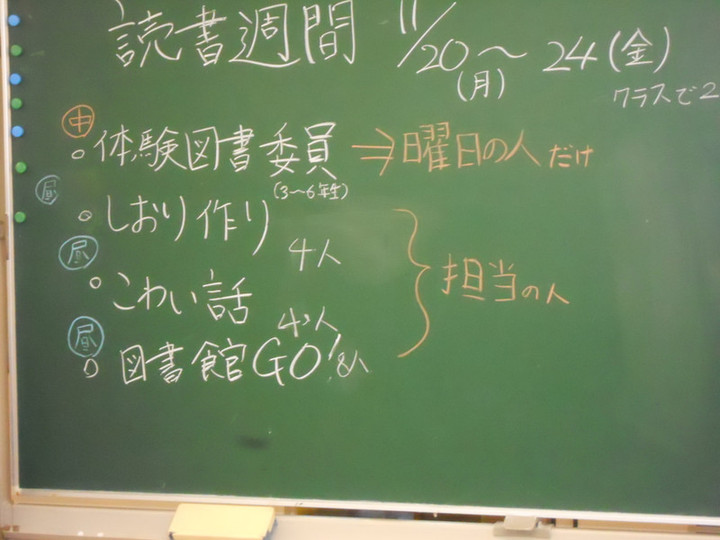 読書週間 11/20(月)〜24(金)
クラスで2
中
○体験図書委員 ⇒日曜日の人だけ
(3〜6年生)
昼
○しおり作り
4人
昼
○こわい話 担当の人
4人
昼
○図書館GO! 8人